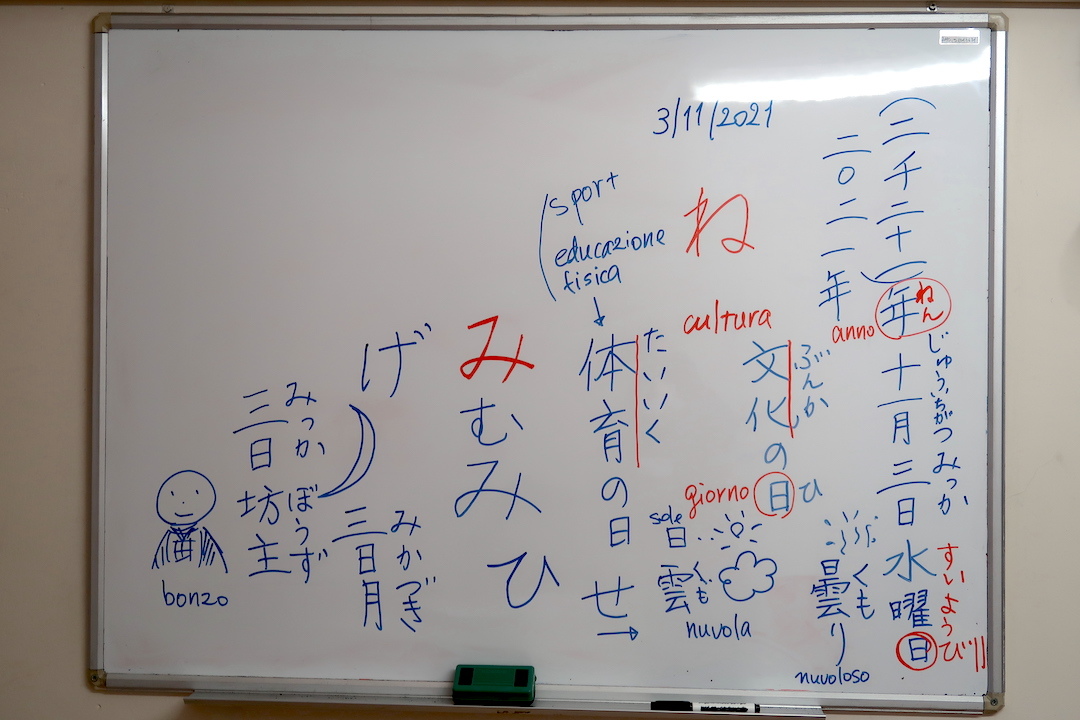 3/11/2021
(二千二十一)年十一月三日水曜日
ねん
じゅういちがつ
みっか
すいようび
二〇二一年
anno
曇り
くも
nuvoloso
文化の日
ぶんか
ひ
cultura
giorno
ね
sole
日
雲
くも
nuvola
(sport
educazione
fisica
体育の日
たいいく
せ
み
む
み
ひ
げ
三日月
みかづき
三日坊主
みっか
ぼうず
bonzo